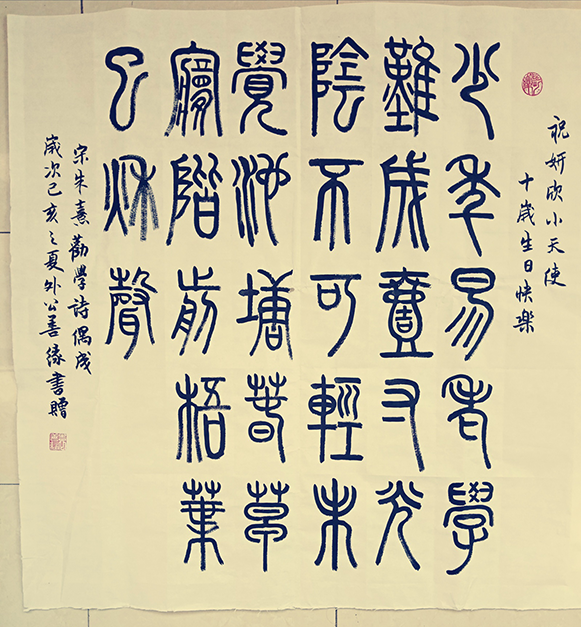 祝妍欣小天使
十歲生日快樂
少年易老學
難成壹寸光
陰不可輕未
覺池塘春草
夢階前梧葉
已秋聲
宋朱熹勸學詩偶成
歲次己亥之夏外公善緣書贈